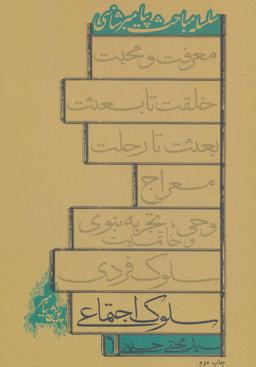 سلسله مباحث پیامبرشناسی
معرفت و محبت
خلقت تا بعثت
بعثت تا رحلت
معراج
وحی، تجربه نبوی
و خاتمیت
سلوک فردی
سلوک اجتماعی
سید مجتبی حسینی
۶
چاپ دوم